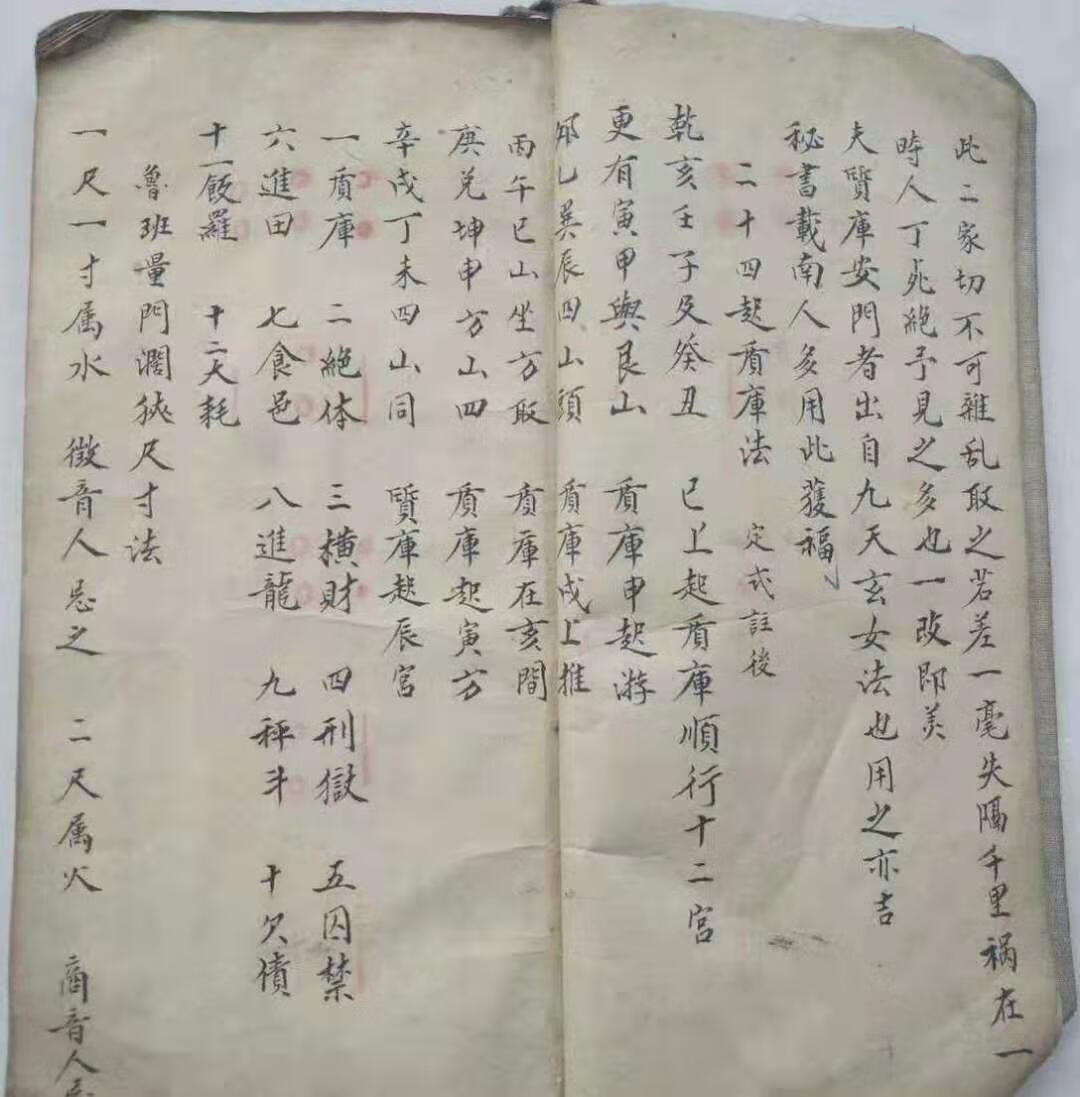 此二家切不可雜乱取之若差一毫失隔千里祸在一
時人丁死絕予見之多也一改即美
夫質庫安門者出自九天玄女法也用之亦吉
秘書載南人多用此獲福
二十四起質庫法 定式註後
乾亥壬子及癸丑 已上起質庫順行十二宮
更有寅甲與艮山 質庫申起游
卯乙巽辰四山頭 質庫戌上推
丙午巳山坐方取 質庫在亥間
庚兑坤申方山四 質庫起寅方
辛戌丁未四山同 質庫起辰宮
一質庫 二絕体 三橫財 四刑獄 五囚禁
六進田 七食邑 八進龍 九秤斗 十欠債
十一飯羅 十二大耗
魯班量門濶狹尺寸法
一尺一寸属水 徵音人忌之 二尺属火 商音人忌